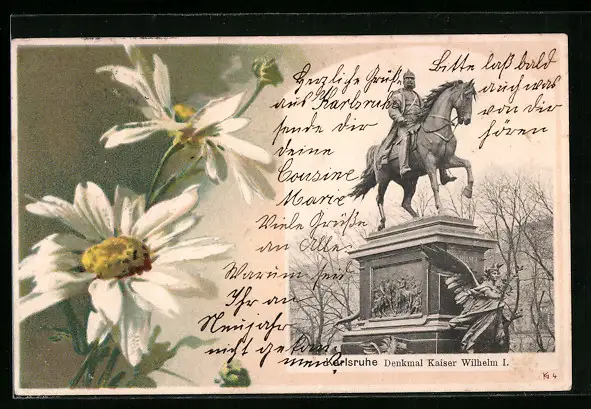 Herzliche Grüße
aus Karlsruhe
sende dir
deine
Cousine
Marie
Viele Grüße
an Alle.
Warum sei
Ihr an
Neujahr
nicht gekom
men?
Bitte laß bald
auch was
von dir
hören
Karlsruhe Denkmal Kaiser Wilhelm I.